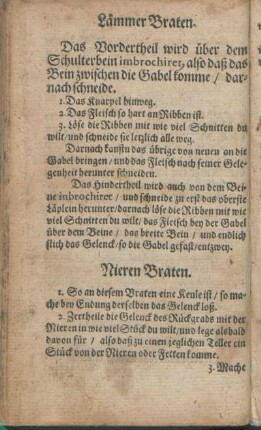 Lämmer Braten.
Das Vordertheil wird über dem
Schulterbein imbrochiret, also daß das
Bein zwischen die Gabel komme / dar-
nach schneide.
1. Das Knarpel hinweg.
2. Das Fleisch so hart an Ribben ist.
3. Löse die Ribben mit wie viel Schnitten du
wilt / und schneide sie letzlich alle weg.
Darnach kanstu das übrige von neuen an die
Gabel bringen / und das Fleisch nach seiner Gele-
genheit herunter schneiden.
Das Hindertheil wird auch von dem Bei-
ne inbrochiret / und schneide zu erst das oberste
Läplein herunter / darnach löse die Ribben mit wie
viel Schnitten du wilt / das Fleisch bey der Gabel
über dem Beine / das breite Bein / und endlich
slich das Gelenck / so die Gabel gefast / entzwey.
Nieren Braten.
1. So an diesem Braten eine Keule ist / so ma-
che bey Endung derselben das Gelenck loß.
2. Zertheile die Gelenck des Rückgrads mit der
Nieren in wie viel Stück du wilt / und lege alsbald
davon für / also daß zu einen jeglichen Teller ein
Stück von der Nieren oder Fetten komme.
3. Mache